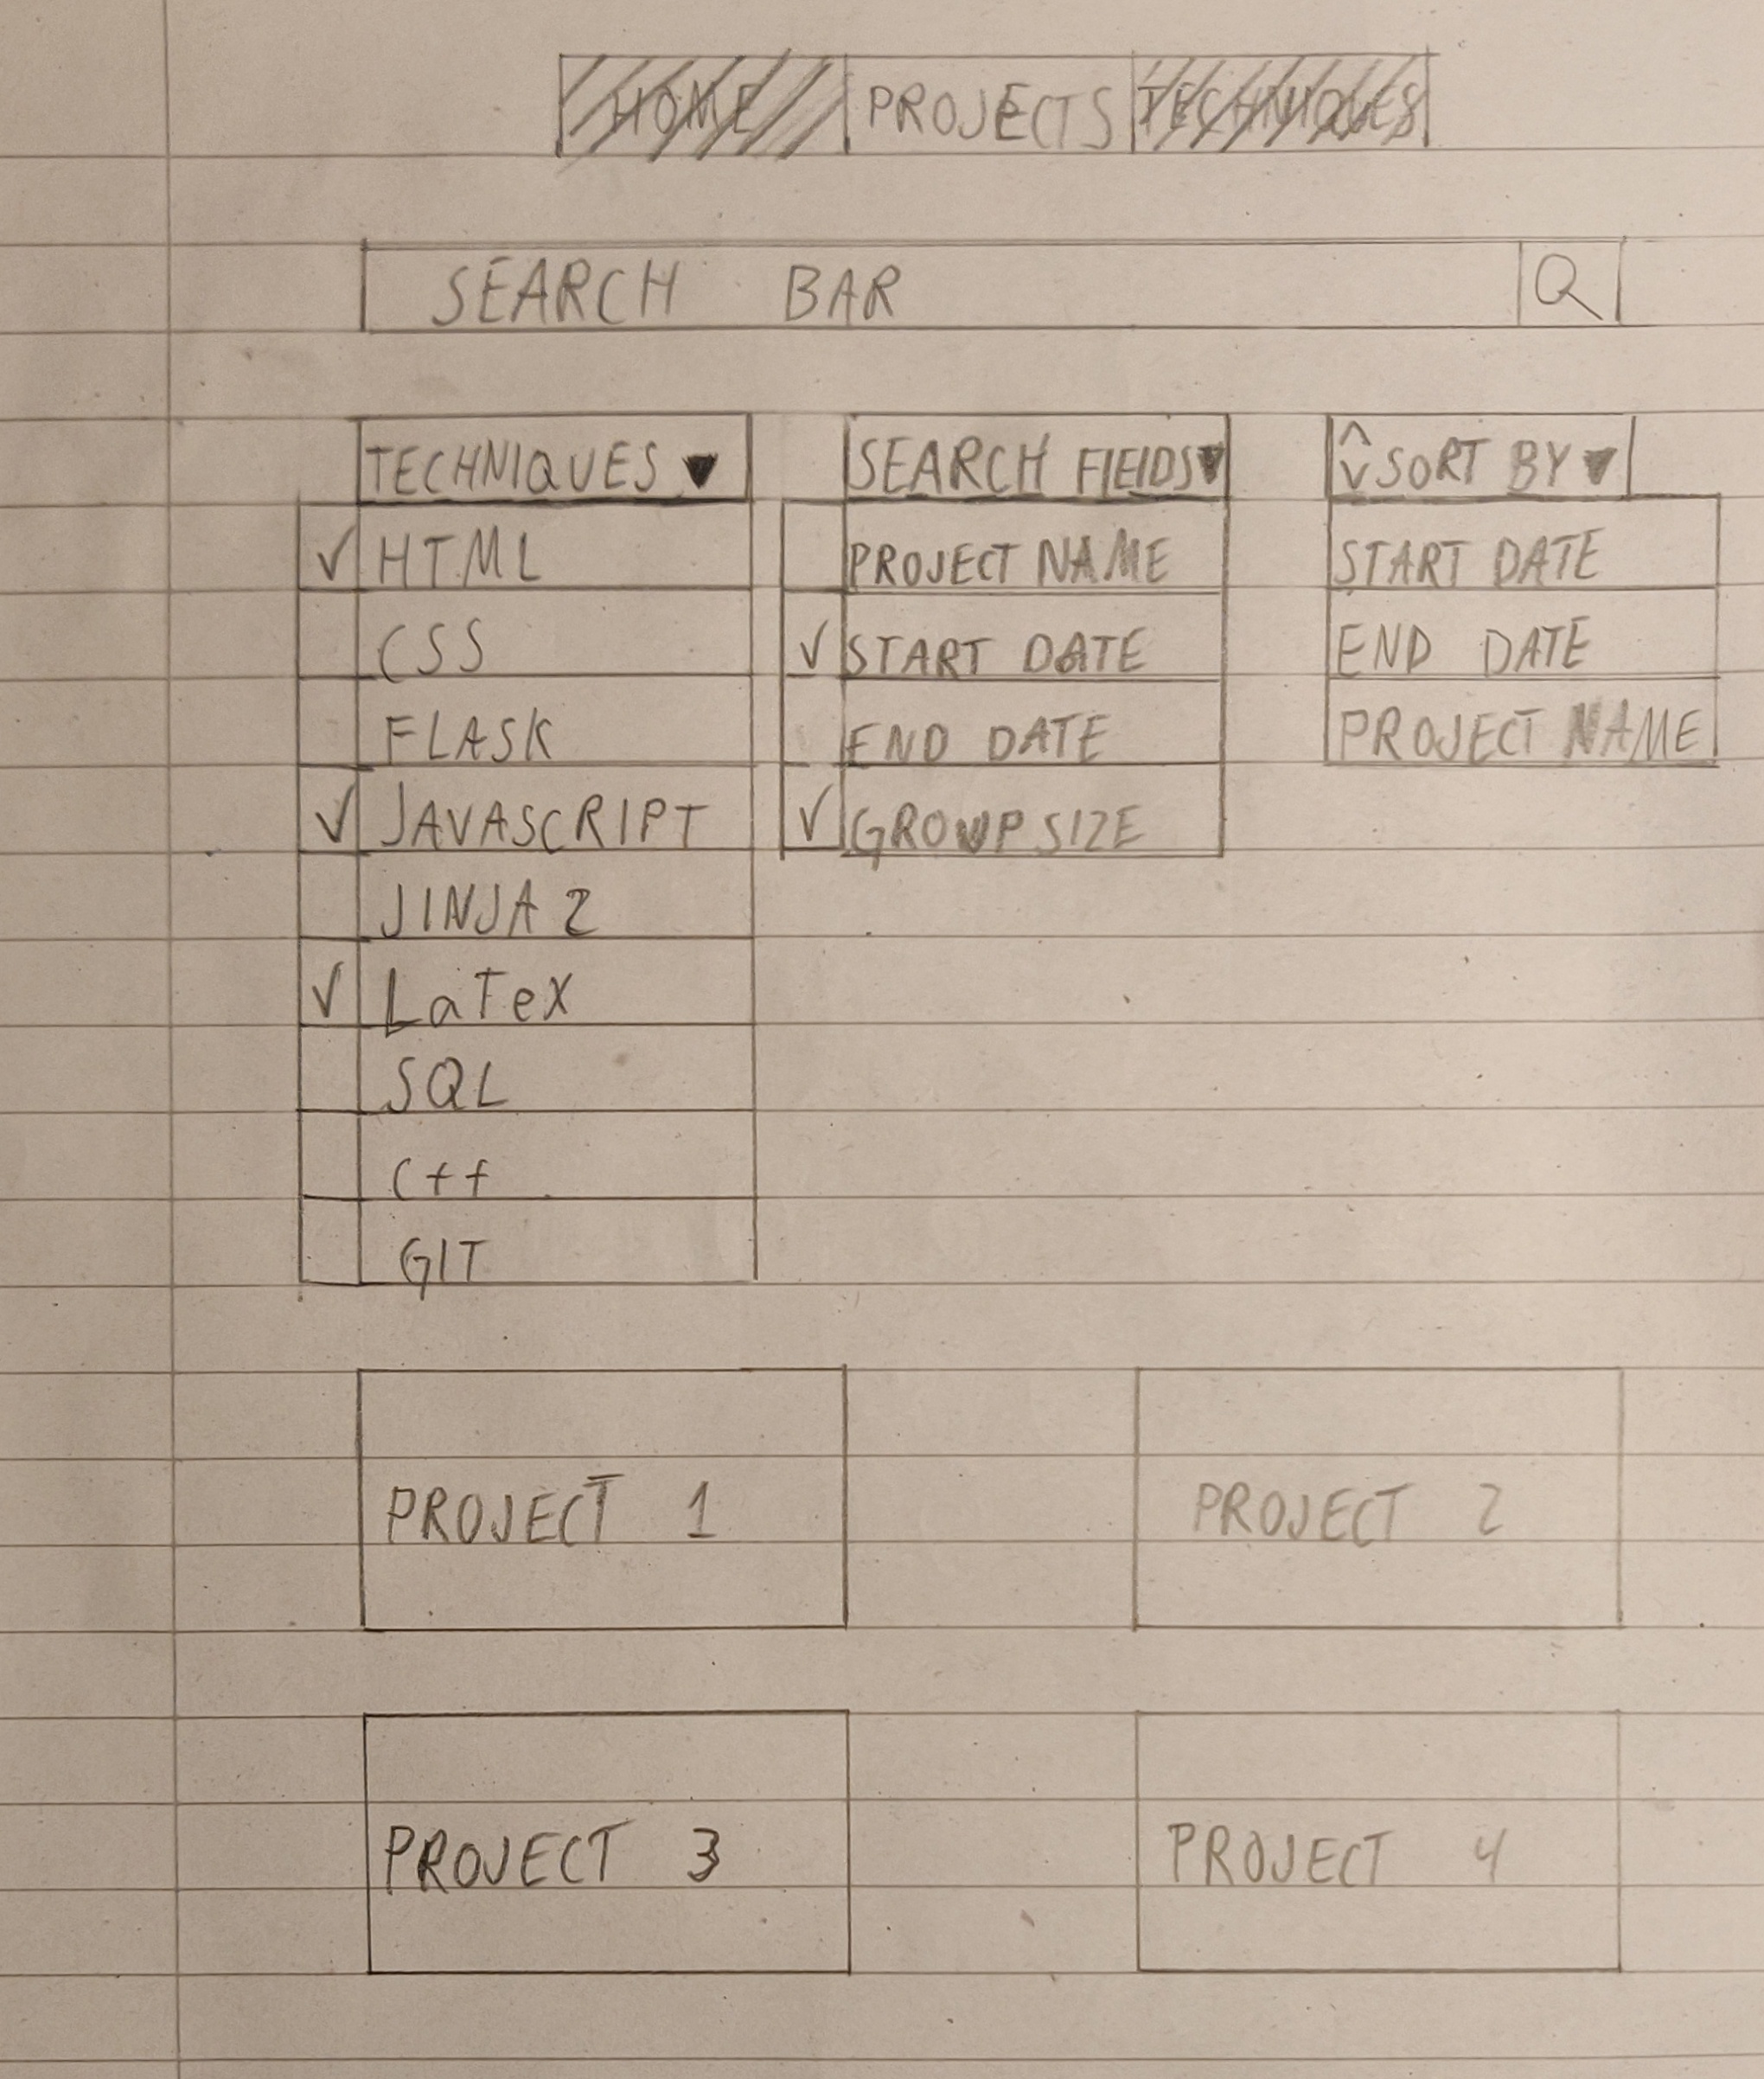 HOME PROJECTS TECHNIQUES
SEARCH BAR
TECHNIQUES
HTML
CSS
FLASK
JAVASCRIPT
JINJA 2
LaTeX
SQL
C++
GIT
SEARCH FIELDS
PROJECT NAME
START DATE
END DATE
GROUP SIZE
SORT BY
START DATE
END DATE
PROJECT NAME
PROJECT 1
PROJECT 2
PROJECT 3
PROJECT 4